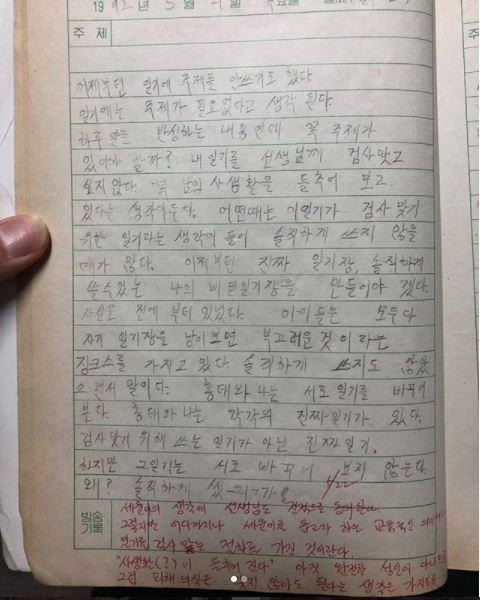 19 92년 5월 21일 목요일
주 제
이제부턴 일기에 주제를 안쓰기로 했다
일기에는 주제가 필요없다고 생각 된다.
하루 일을 반성하는 내용인데 꼭 주제가
있어야 할까? 내 일기를 선생님께 검사맞고
싶지 않다. 꼭 남의 사생활을 들추어 보고
있다는 생각이든다. 어떤때는 이일기가 검사 맞기
위한 일기라는 생각이 들어 솔직하게 쓰지 않을
때가 많다. 이제부턴 진짜 일기장, 솔직하게
쓸수있는 나의 비밀일기장을 만들어야 겠다.
사실은 전에 부터 있었다. 아이들은 모두다
자기 일기장을 남이보면 부끄러운것 이라는
징크스를 가지고 있다. 솔직하게 쓰지도 않았
으면서 말이다. 홍태와 나는 서로 일기를 바꾸어
본다. 홍태와 나는 각각의 진짜일기가 있다.
검사맞기 위해 쓰는 일기가 아닌 진짜일기.
하지만 그일기는 서로 바꾸어 보지 않는다.
왜? 솔직하게 썼
5/22
방송
기록
생각이 선생님도 전적으로 동의한다.
그렇지만 어디까지나 돕고자 하는 교육적인
일기를 검사 맞는 것이란다.
"사생활(?)이 들추어 진다" 아직 완전한 성인이 아니
그런 피해 의식은 갖지 않아도 된다는 생각은